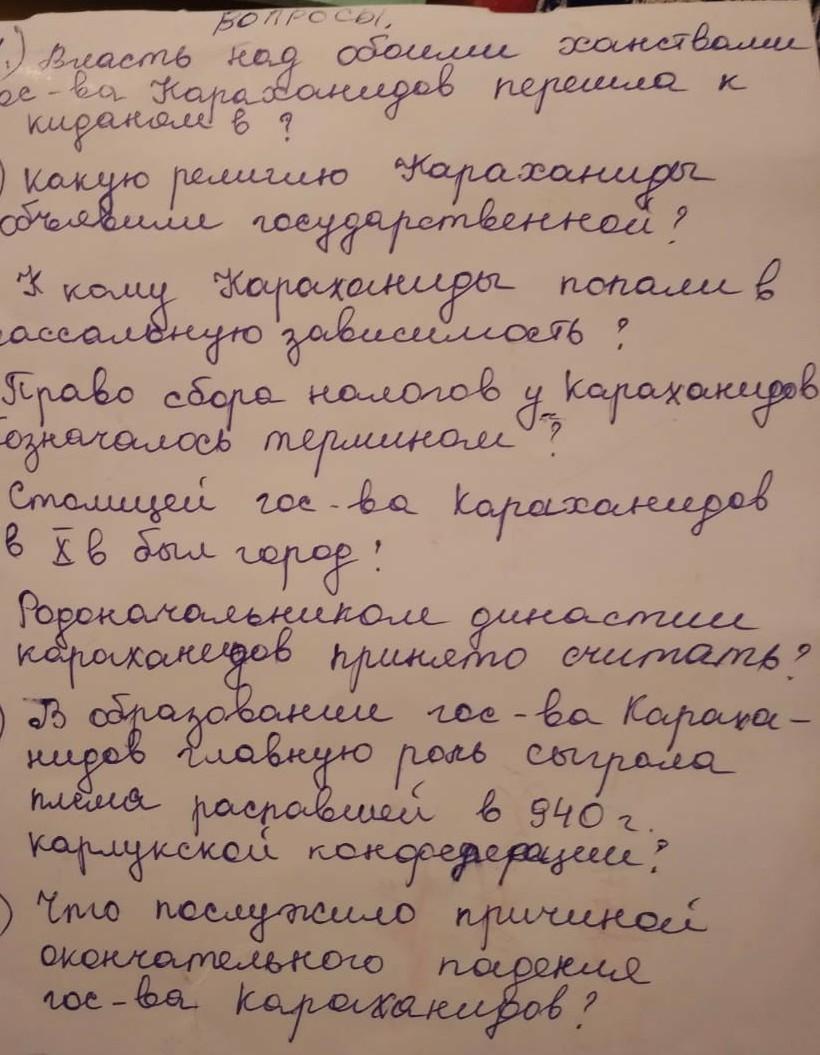 ВОПРОСЫ.
1.) Власть над обоими ханствами
гос-ва Караханидов перешла к
киданам в ?
) какую религию Караханиды
объявили государственной?
К кому Караханиды попали в
вассальную зависимость ?
Право сбора налогов у Караханидов
означалось термином ?
Столицей гос-ва Караханидов
в X в был город?
Родоначальником династии
караханидов принято считать?
) В образовании гос-ва Караха-
нидов главную роль сыграла
племя распавшей в 940 г.
карлукской конфедерации?
) Что послужило причиной
окончательного падения
гос-ва Караханидов?